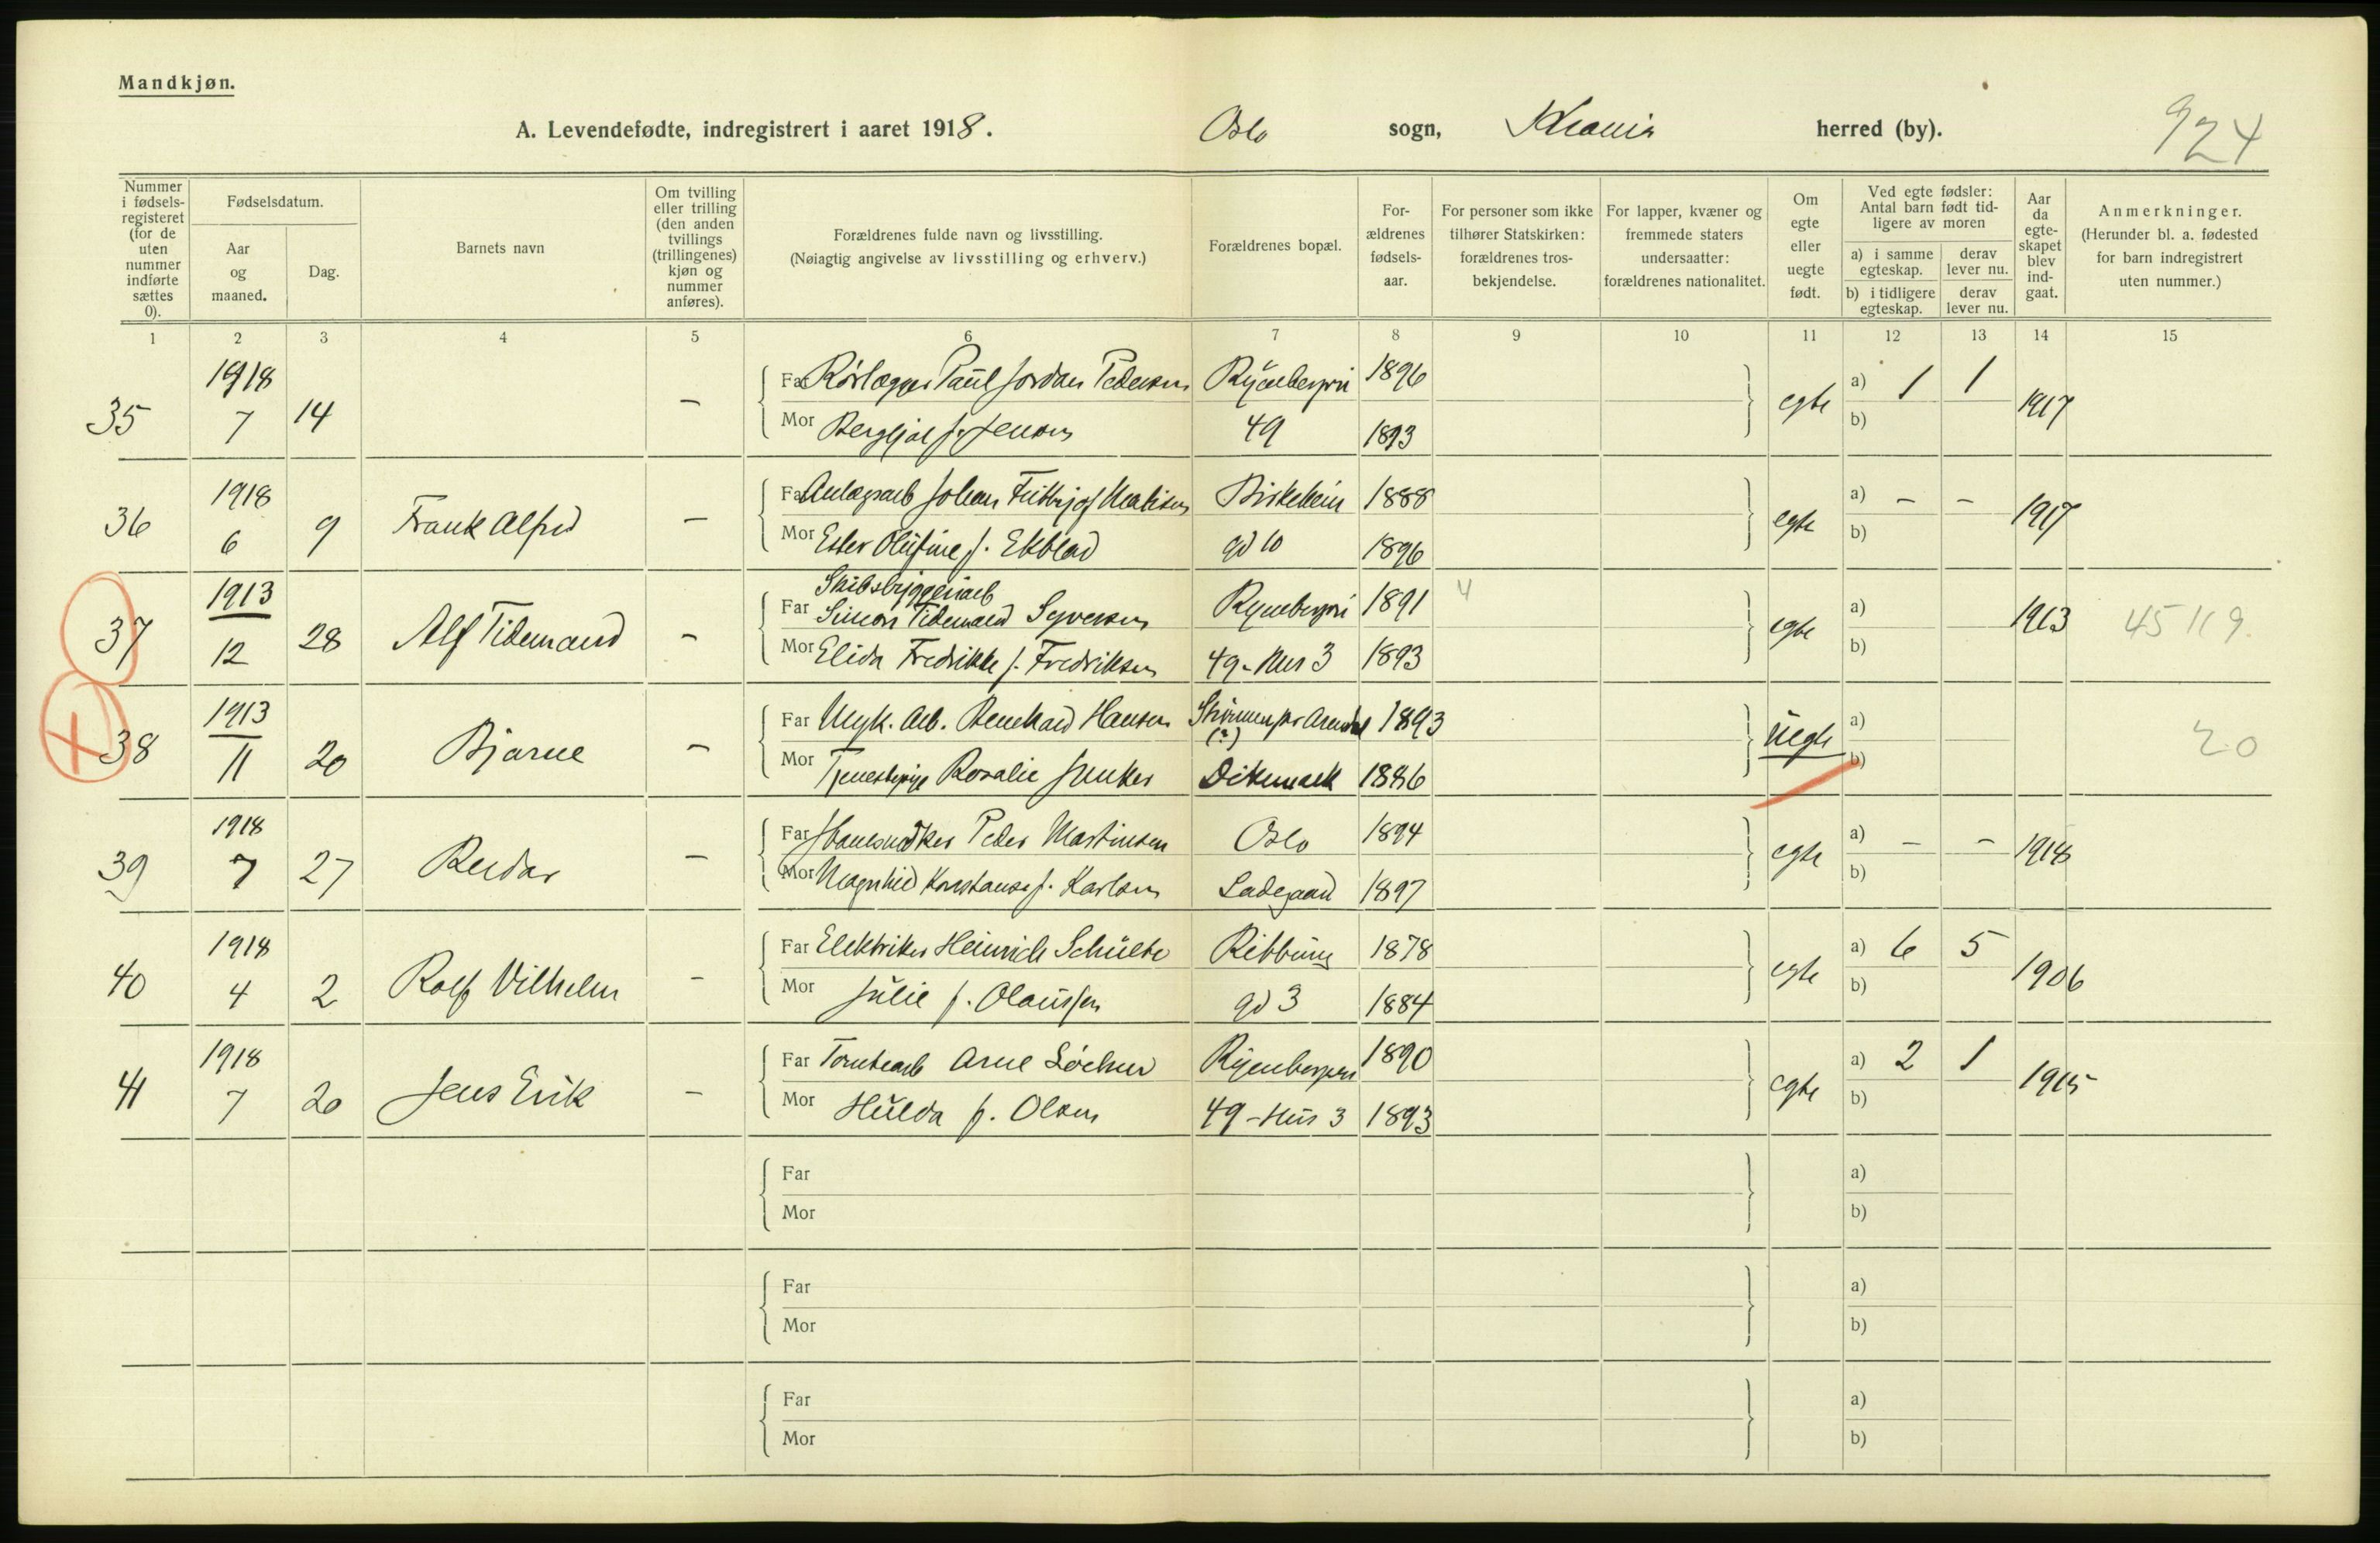 Mandkjøn.
A. Levendefødte, indregistrert i aaret 1918. Oslo sogn, Kr.ania herred (by). 924
Nummer i fødsels-registeret (for de uten nummer indførte sættes 0).
Fødselsdatum.
Aar og maaned.
Dag.
Barnets navn
Om tvilling eller trilling (den anden tvillings (trillingenes) kjøn og nummer anføres).
Forældrenes fulde navn og livsstilling.
(Nøiagtig angivelse av livsstilling og erhverv.)
Forældrenes bopæl.
For-ældrenes fødsels-aar.
For personer som ikke tilhører Statskirken: forældrenes tros-bekjendelse.
For lapper, kvæner og fremmede staters undersaatter: forældrenes nationalitet.
Om egte eller uegte født.
Ved egte fødsler: Antal barn født tid-ligere av moren
a) i samme egteskap.
derav lever nu.
b) i tidligere egteskap.
derav lever nu.
Aar da egte-skapet blev ind-gaat.
Anmerkninger.
(Herunder bl. a. fødested for barn indregistrert uten nummer.)
1 2 3 4 5 6 7 8 9 10 11 12 13 14 15
1918 Far Rørlægger Paul Jordan Pedersen 1896 a) 1 1
35 7 14 – egte 1917
Mor f. Jensen 49 1893 b)
1918 Far Johan 1888 a) – –
36 6 9 Frank Alfred – egte 1917
Mor Ester Olufine f. Ekblad gd 10 1896 b)
1913 Skibsbyggeriarb
Far Simon Tidemand Syversen 1891 4 a)
37 12 28 Alf Tidemand – egte 1913 45 119.
Mor Elida Fredrikke f. Fredriksen 49 - Hus 3 1893 b)
1913 Far Myk. Arb. Hansen pr Arendal 1893 a)
(?)
38 11 20 Bjarne – Uegte 20
Mor Tjenestepige Rosalie Junker Dikemark 1886 b)
1918 Far Peder Martinsen Oslo 1894 a) – –
39 7 27 Reidar – egte 1918
Mor Magnhild Konstanse f. Karlsen Ladegaard 1897 b)
1918 Far Elektriker Heinrich Schülte Ribbung 1878 a) 6 5
40 4 2 Rolf Vilhelm – egte 1906
Mor Julie f. Olaussen gd 3 1884 b)
1918 Far Tomtearb Arne 1890 a) 2 1
41 7 20 Jens Erik – egte 1915
Mor Hulda f. Olsen 49 - Hus 3 1893 b)
Far a)
Mor b)
Far a)
Mor b)
Far a)
Mor b)